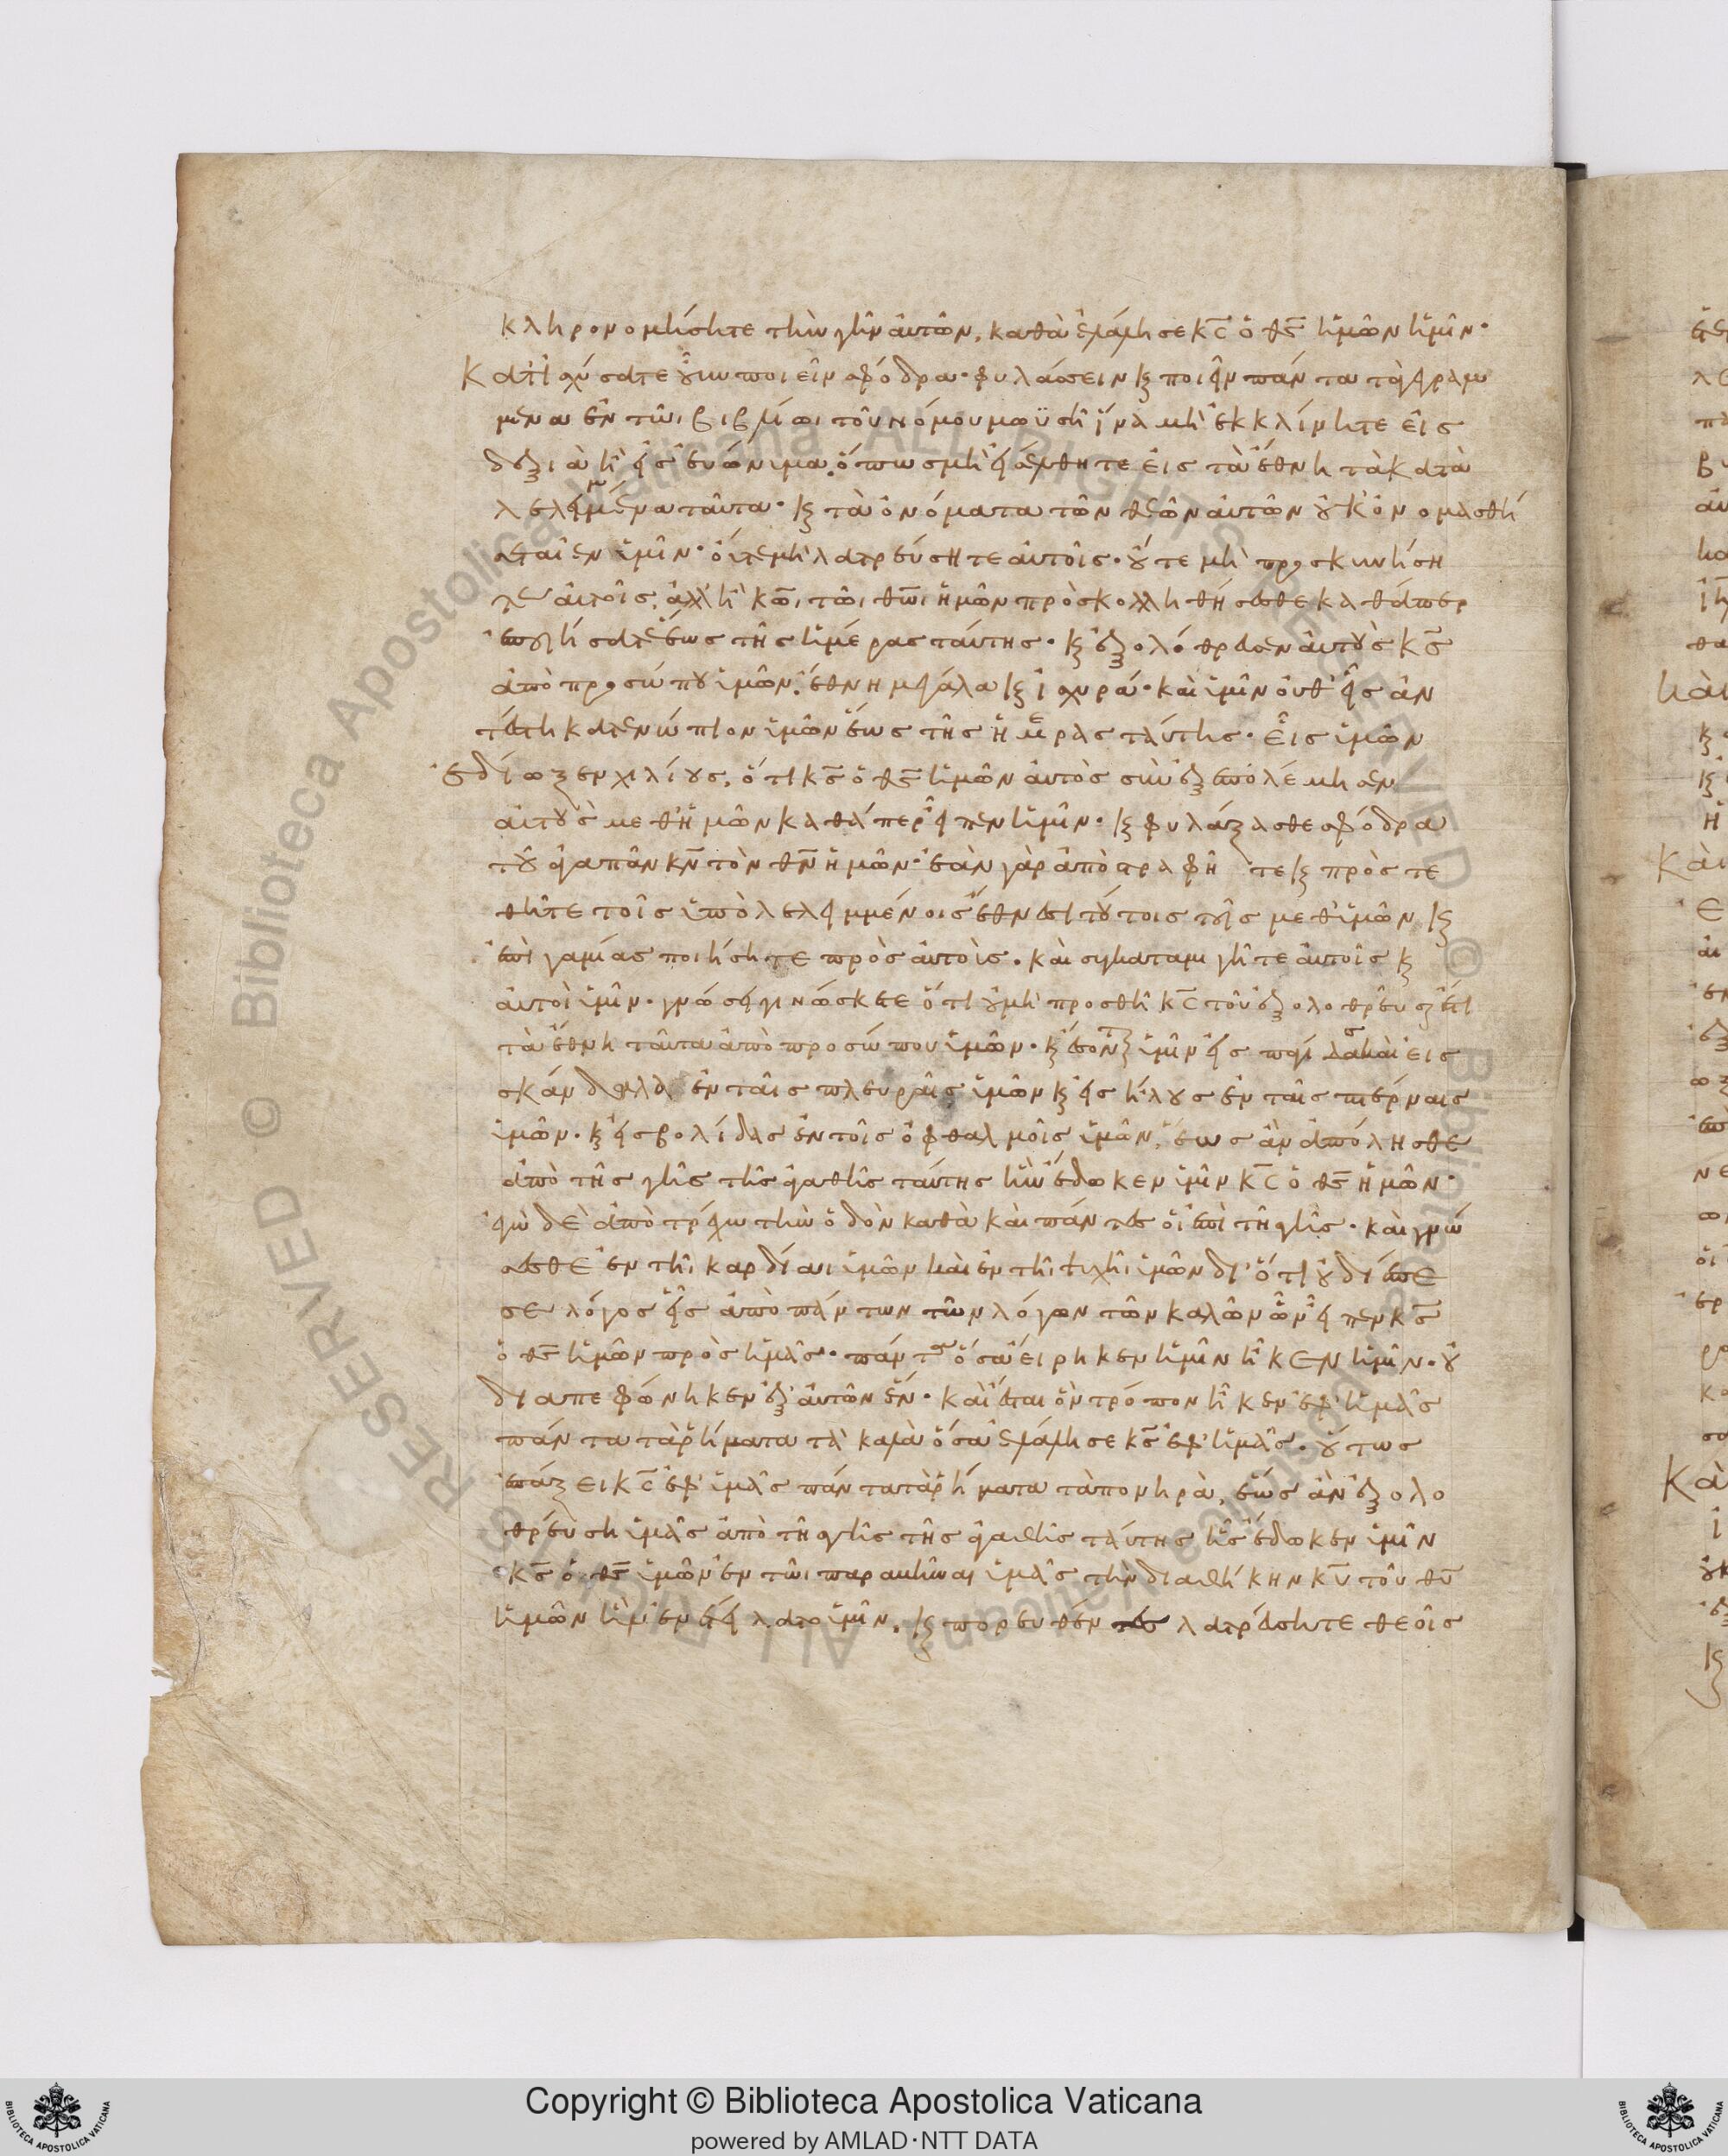 κληρονομήσητε τὴν γῆν ἀυτῶν, καθὰ ἐλάλησε κ̅ς̅ ὁ θ̅ς̅ ἡμῶν ἡμῖν·
Κατισχύσατε οὖν ποιεῖν σφόδρα· φυλάσσειν κ̀ ποιεῖν πάντα τὰ γεγραμ
μένα ἐν τῶι βιβλίωι τοῦ νόμου μωϋσῆ ἵνα μὴ ἐκκλίνητε εἰς
δεξιὰ ἢ εἰς ἐυώνυμα, ὅπως μὴ εἰσέλθητε εἰς τὰ ἔθνη τὰ κατα
λελειμμένα ταῦτα· κ̀ τὰ ὀνόματα τῶν θεῶν ἀυτῶν οὐκ ὀνομασθή
σεται ἐν ὑμῖν· ὄυτε μὴ λατρεύσητε ἀυτοῖς· οὔτε μὴ προσκυνήση
τε ἀυτοῖς, ἀλλ' ἢ κ̅ω̅ι τῶι θ̅ω̅ι ἡμῶν προσκολληθήσεσθε καθάπερ
ἐποιήσατε ἕως τῆς ἡμέρας τάυτης· κ̀ ἐξολόθρευσεν ἀυτοὺς κ̅ς̅
ἀπὸ προσώπου ὑμῶν, ἔθνη μεγάλα κ̀ ἰσχυρά· καὶ ὑμῖν ὀυθ' εἷς ἀν
τέστη κατενώπιον ὑμῶν ἕως τῆς ἡμέρας ταύτης· εἷς ὑμῶν
ἐδίωξεν χιλίους, ὅτι κ̅ς̅ ὁ θ̅ς̅ ἡμῶν ἀυτὸς συνεξεπολέμησεν
ἀυτοὺς μεθ' ἡμῶν καθάπερ εἶπεν ἡμῖν· κ̀ φυλάξασθε σφόδρα
τοῦ ἀγαπᾶν κ̅ν̅ τὸν θ̅ν̅ ἡμῶν· ἐὰν γὰρ ἀποστραφῆτε κ̀ προστε
θῆτε τοῖς ὑπολελειμμένοις ἔθνεσι τούτοις τοῖς μεθ' ὑμῶν κ̀
ἐπιγαμίας ποιήσητε πρὸς ἀυτοὺς· καὶ συγκαταμιγῆτε ἀυτοῖς κ̀
ἀυτοὶ ὑμῖν· γνώσει γινώσκετε ὅτι οὐ μὴ προσθῆ κ̅ς̅ τοῦ ἐξολοθρεῦσαι ἔτι
τὰ ἔθνη ταῦτα ἀπὸ προσώπου ὑμῶν· κ̀ ἔσονται ὑμῖν εἰς παγίδας καὶ εἰς
σκάνδαλα ἐν ταῖς πλευραῖς ὑμῶν κ̀ εἰς ἥλους ἐν ταῖς πτέρναις
ὑμῶν· κ̀ εἰς βολίδας ἐν τοῖς ὀφθαλμοῖς ὑμῶν, ἕως ἂν ἀπόλησθε
ἀπὸ τῆς γῆς τῆς ἀγαθῆς ταύτης ἣν ἔδωκεν ὑμῖν κ̅ς̅ ὁ θ̅ς̅ ἡμῶν·
ἐγὼ δὲ ἀποτρέχω τὴν ὁδὸν καθὰ καὶ πάντες οἱ ἐπὶ τῆς γῆς· καὶ γνώ
σεσθε ἐν τῆι καρδίαι ὑμῶν καὶ ἐν τῆι ψυχῆι ὑμῶν δι' ὅτι οὐ διέπε
σε λόγος εἷς ἀπὸ πάντων τῶν λόγων τῶν καλῶν ὧν εἶπεν κ̅ς̅
ὁ θ̅ς̅ ἡμῶν πρὸς ἡμᾶς· πάντα ὅσα εἴρηκεν ἡμῖν ἧκεν ἡμῖν· οὐ
διαπεφώνηκεν ἐξ ἀυτῶν ἕν· καὶ ἔσται ὃν τρόπον ἧκεν ἐφ' ἡμᾶς
πάντα τὰ ῥήματα τὰ καλὰ ὅσα ἐλάλησε κ̅ς̅ ἐφ' ἡμᾶς· οὕτως
ἐπάξει κ̅ς̅ ἐφ' ὑμᾶς πάντα τὰ ῥήματα τὰ πονηρὰ, ἕως ἂν ἐξολο
θρεύση ὑμᾶς ἀπὸ τῆς γῆς τῆς ἀγαθῆς ταύτης ἧς ἔδωκεν ὑμῖν
κ̅ς̅ ὁ θ̅ς̅ ὑμῶν ἐν τῶι παραβῆναι ὑμᾶς τὴν διαθήκην κ̅υ̅ τοῦ θ̅υ̅
ἡμῶν ἣν ἐνετείλατο ὑμῖν, κ̀ πορευθέντες λατρεύσητε θεοῖς
Copyright © Biblioteca Apostolica Vaticana
powered by AMLAD·NTT DATA